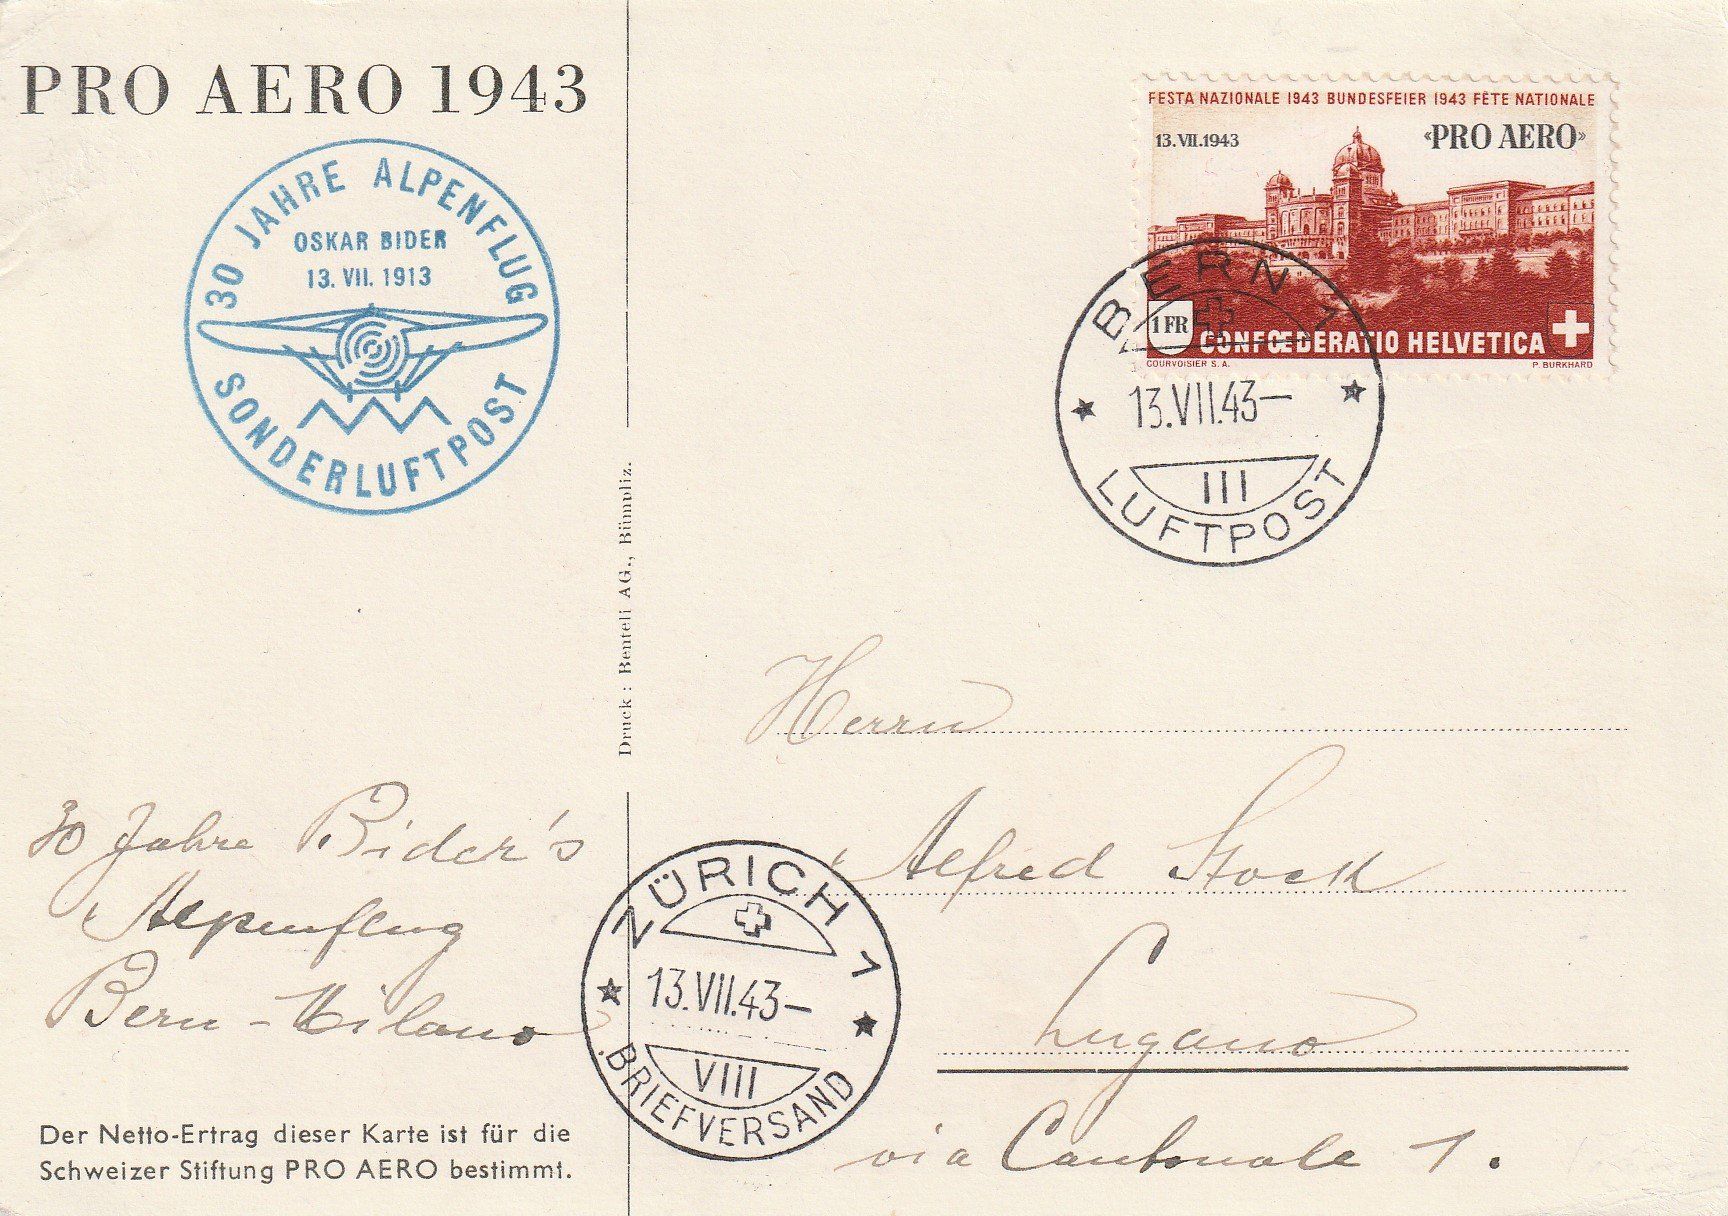 PRO AERO 1943
30 JAHRE ALPENFLUG
OSKAR BIDER
13. VII. 1913
SONDERLUFTPOST
FESTA NAZIONALE 1943 BUNDESFEIER 1943 FÊTE NATIONALE
13.VII.1943
«PRO AERO»
1 FR
CONFŒDERATIO HELVETICA
COURVOISIER S.A.
P. BURKHARD
BERN 1
13.VII.43–
III
LUFTPOST
Druck: Benteli AG., Bümpliz.
Herrn
Alfred Stock
Lugano
via Cantonale 1.
30 Jahre Bider's
Alpenflug
Bern - Milano
ZÜRICH 1
13.VII.43–
VIII
BRIEFVERSAND
Der Netto-Ertrag dieser Karte ist für die
Schweizer Stiftung PRO AERO bestimmt.